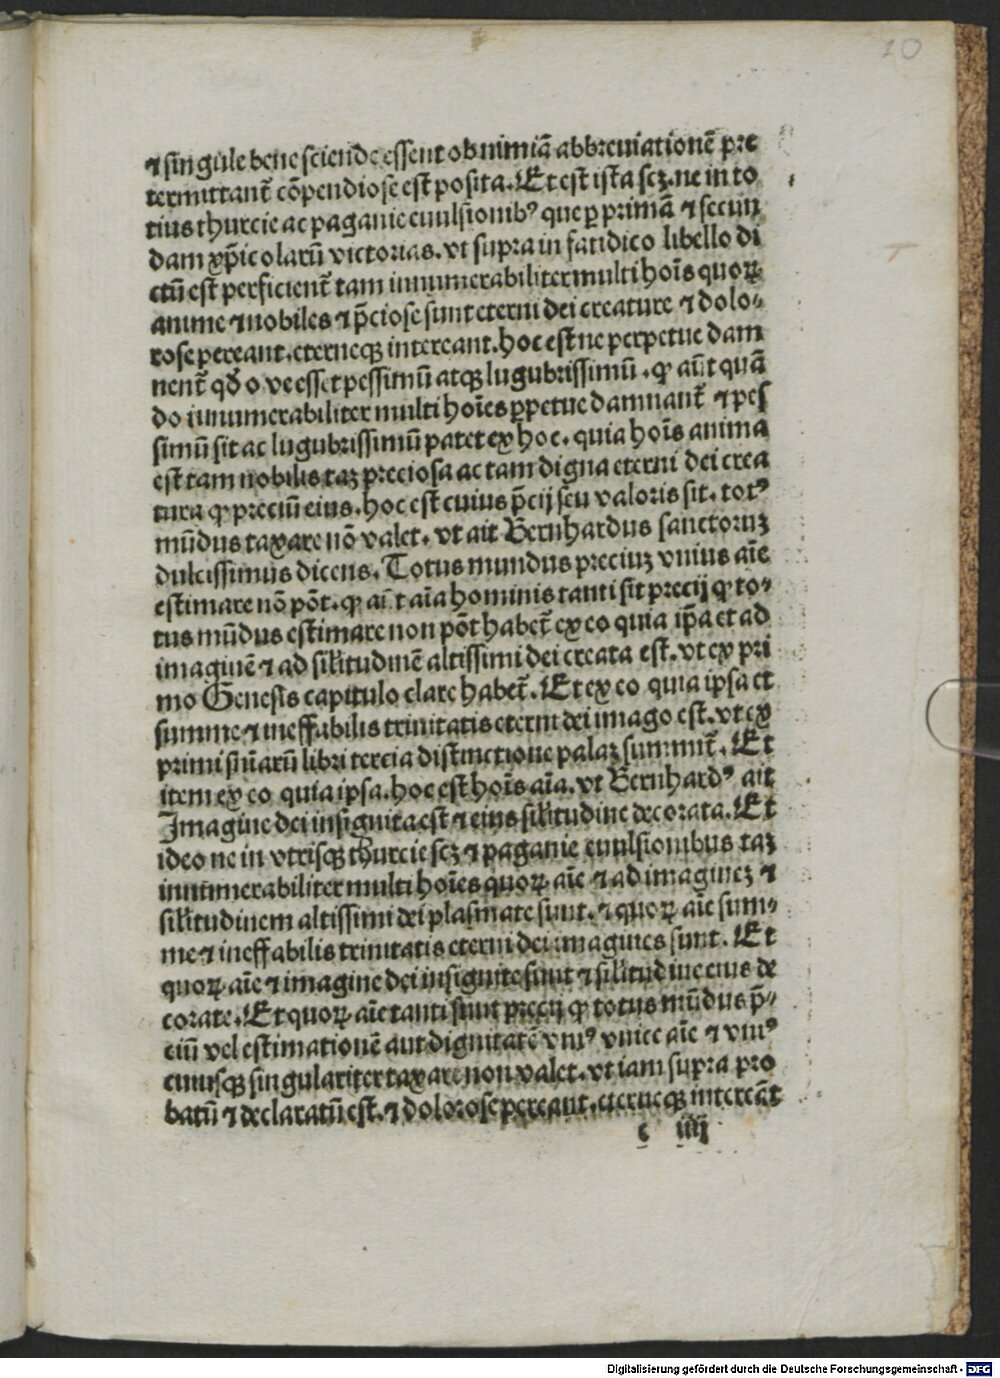 20
⁊ singule bene sciende essent ob nimiā abbreuiationē pre
termittant̄ cōpendiose est posita. Et est ista scz. ne in to
tius thurcie ac paganie euulsionibꝰ que ꝑ primā ⁊ secun
dam xp̄icolarū victorias. vt supra in fatidico libello di
ctū est perficient̄ tam innumerabiliter multi hoīs quoꝝ
anime ⁊ nobiles ⁊ p̄ciose sunt eterni dei creature ⁊ dolo-
rose pereant. eterneqꝫ intereant. hoc est ne perpetue dam
nent̄ qd̄ o ve esset pessimū atqꝫ lugubrissimū. ꝙ aūt quā
do innumerabiliter multi hoīes ꝑpetue damnant̄ ⁊ pes
simū sit ac lugubrissimū patet ex hoc. quia hoīs anima
est tam nobilis taꝫ preciosa ac tam digna eterni dei crea
tura ꝙ preciū eius. hoc est cuius p̄cij seu valoris sit. totꝰ
mūdus taxare nō valet. vt ait Bernhardus sanctoruꝫ
dulcissimus dicens. Totus mundus preciuꝫ vnius aīe
estimare nō pōt. ꝙ aūt aīa hominis tanti sit precij ꝙ to-
tus mūdus estimare non pōt habet̄ ex eo quia ip̄a et ad
imaginē ⁊ ad sil̄itudinē altissimi dei creata est. vt ex pri
mo Genesis capitulo clare habet̄. Et ex eo quia ipsa et
summe ⁊ ineffabilis trinitatis eterni dei imago est. vt ex
primi sn̄iarū libri tercia distinctione palaꝫ summit̄. Et
item ex eo quia ipsa. hoc est hoīs aīa. vt Bernhardꝰ ait
Imagine dei insignita est ⁊ eius sil̄itudine decorata. Et
ideo ne in vtrisqꝫ thurcie scꝫ ⁊ paganie euulsionibus taꝫ
innumerabiliter multi hoīes quoꝝ aīe ⁊ ad imagineꝫ ⁊
sil̄itudinem altissimi dei plasmate sunt. ⁊ quoꝝ aīe sum-
me ⁊ ineffabilis trinitatis eterni dei imagines sunt. Et
quoꝝ aīe ⁊ imagine dei insignite sunt ⁊ sil̄itudine eius de
corate. Et quoꝝ aīe tanti sunt precij ꝙ totus mūdus p̄-
ciū vel estimationē aut dignitatē vniꝰ vnice aīe ⁊ vniꝰ
cuiusqꝫ singulariter taxare non valet. vt iam supra pro
batū ⁊ declaratū est. ⁊ dolorose pereant. eterneqꝫ intereāt
c iiij
Digitalisierung gefördert durch die Deutsche Forschungsgemeinschaft - DFG